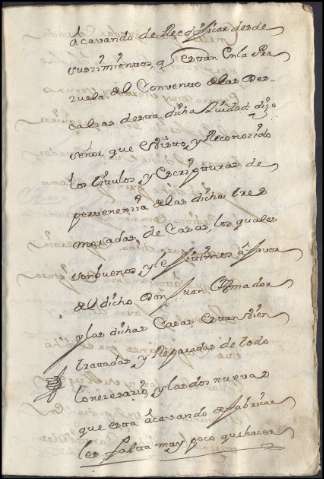 acavando de Recoxer desde
cubrimientos, q estan en la Pla
zuela del Convento de las Des
calzas desta dicha Ciudad dijo
señor que a visto, y Reconozido
los titulos y escripturas de
pertenenzia de las dichas tres
moradas, de Casas, los quales
son buenos, y lexitimos a favor
del dicho Don Juan Amador
y las dichas Casas estan bien
tratadas, y Reparadas de todo
lo necesario, y las dos nuevas
que esta acavando de fabricar
les falta muy poco que hacer